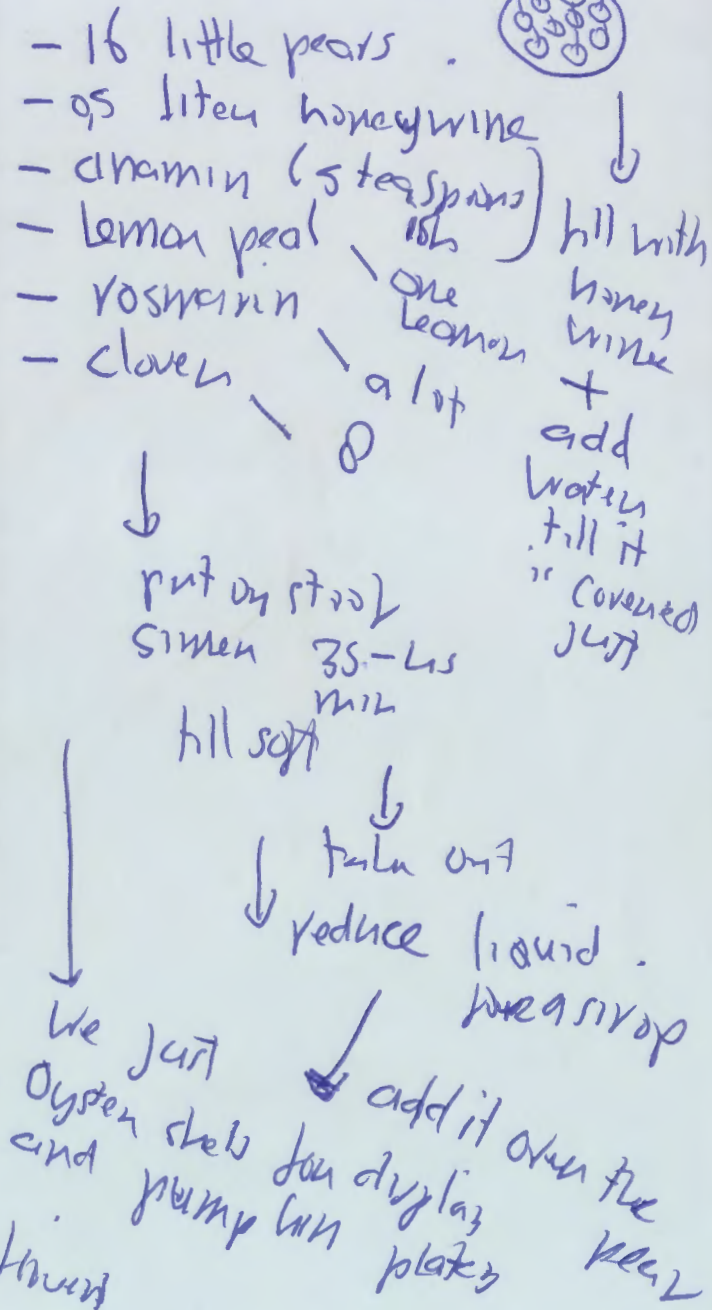 - 16 little pears .
- 0,5 liter honeywine
- cinamin (5 teaspoons)
- Lemon peal \ one Leamon
- rosmarin \ a lot
- cloven \ 8
fill with
honey
wine
+
add
water
till it
is covered
just
put on stool
simer 35-45
min
till soft
take out
reduce liquid .
like a sirop
add it over the
pear
we just
Oyster shels for dysplay
and pumpkin plates
flowers